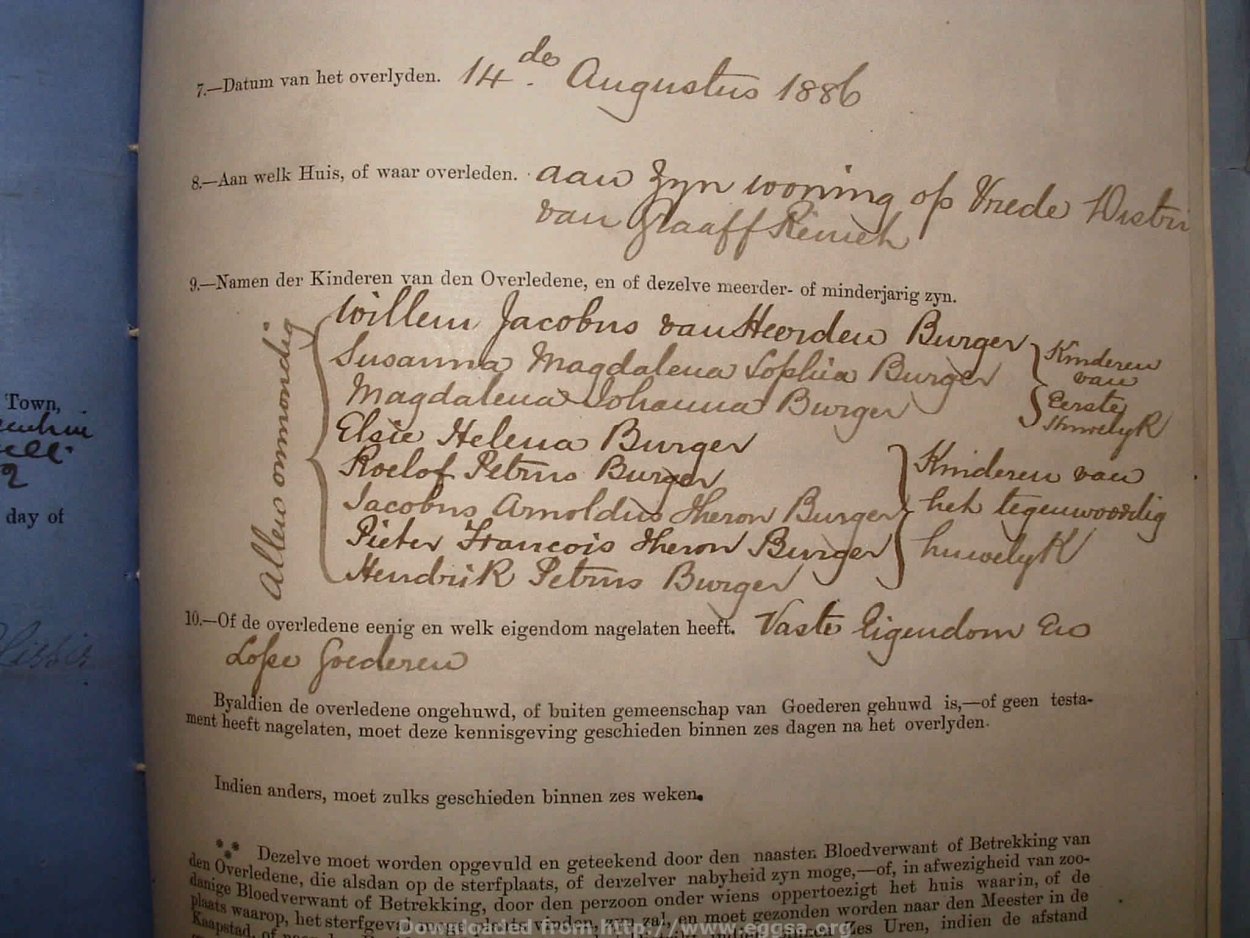 7.—Datum van het overlyden. 14de. Augustus 1886
8.—Aan welk Huis, of waar overleden. aan Zyn woning op Vrede Distri
van Graaff Reineh
9.—Namen der Kinderen van den Overledene, en of dezelve meerder- of minderjarig zyn.
Allen onmondig
Willem Jacobus van Heerden Burger
Susanna Magdalena Sophia Burger
Magdalena Johanna Burger
Kinderen
van
Eerste
Huwelyk
Elsie Helena Burger
Roelof Petrus Burger
Jacobus Arnoldus Theron Burger
Pieter Francois Theron Burger
Hendrik Petrus Burger
Kinderen van
het tegenwoordig
huwelyk
10.—Of de overledene eenig en welk eigendom nagelaten heeft. Vaste Eigendom En
Losse Goederen
Byaldien de overledene ongehuwd, of buiten gemeenschap van Goederen gehuwd is,—of geen testa-
ment heeft nagelaten, moet deze kennisgeving geschieden binnen zes dagen na het overlyden.
Indien anders, moet zulks geschieden binnen zes weken.
*** Dezelve moet worden opgevuld en geteekend door den naasten Bloedverwant of Betrekking van
den Overledene, die alsdan op de sterfplaats, of derzelver nabyheid zyn moge,—of, in afwezigheid van zoo-
danige Bloedverwant of Betrekking, door den perzoon onder wiens oppertoezigt het huis waarin, of de
plaats waarop, het sterfgeval moge plaats vinden, zyn zal, en moet gezonden worden naar den Meester in de
Kaapstad, of Zes Uren, indien de afstand
Town,
day of
Downloaded from http://www.eggsa.org